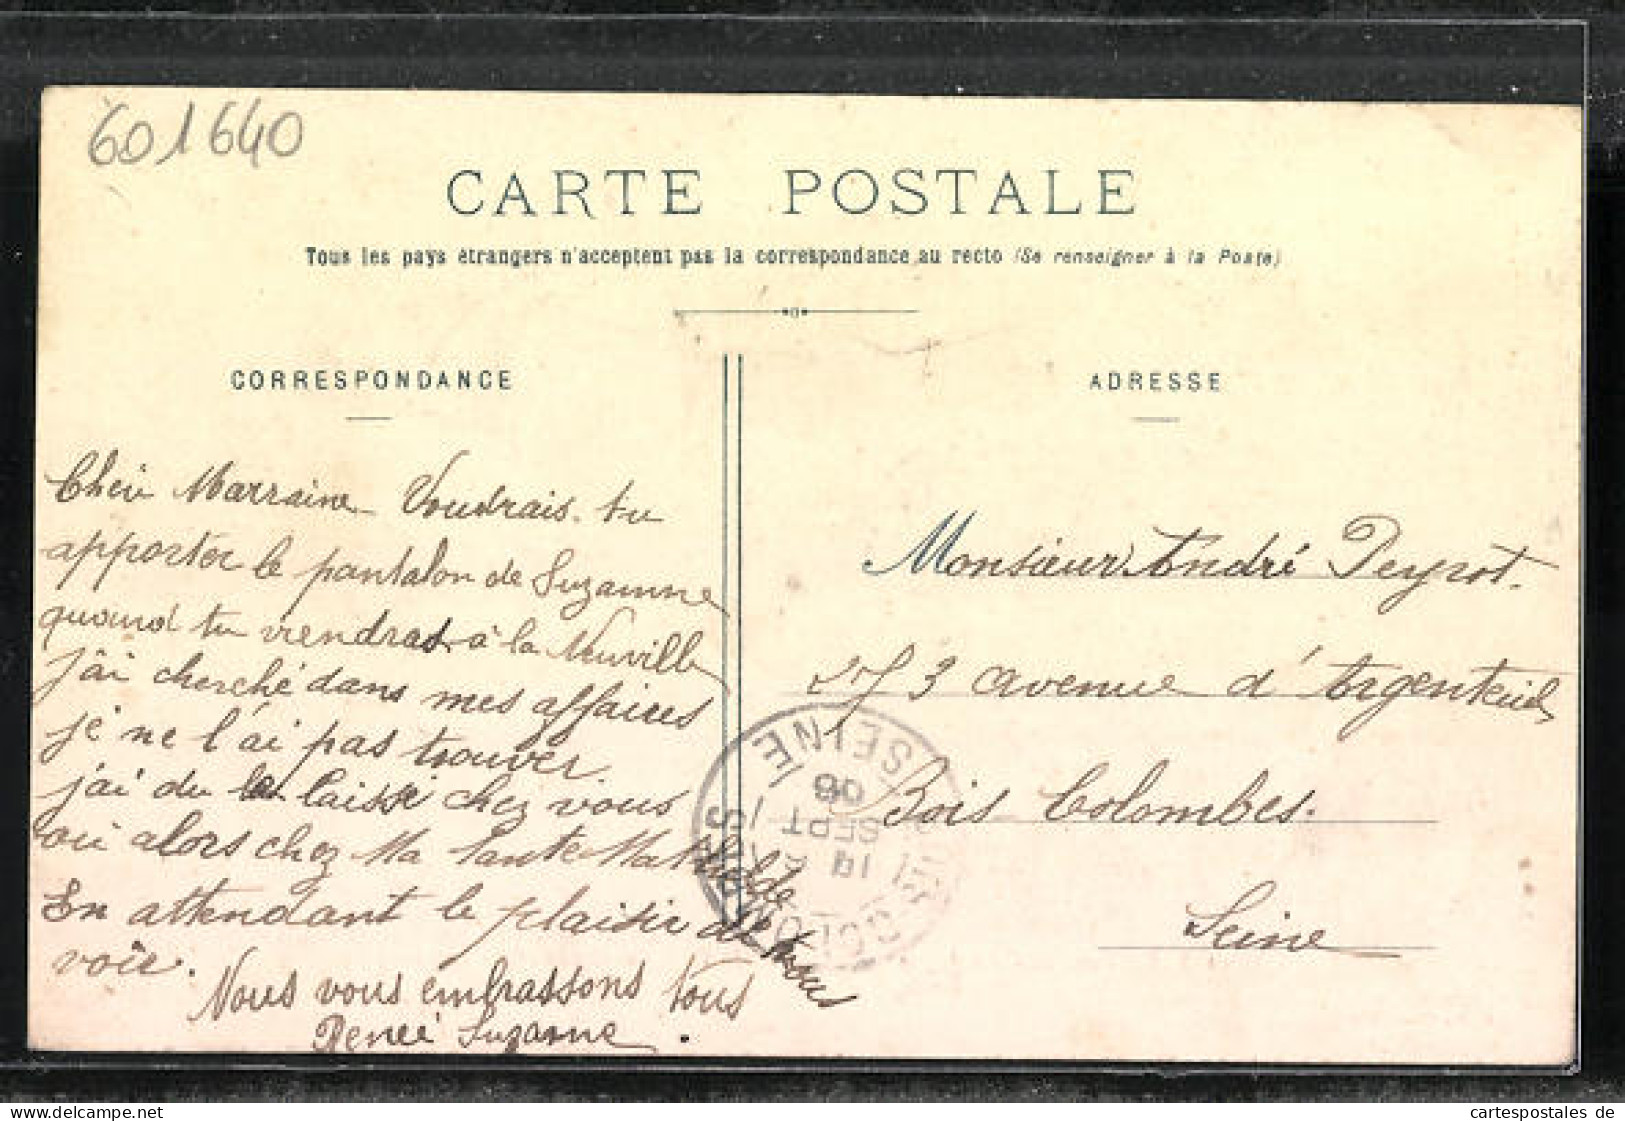 601640
CARTE POSTALE
Tous les pays étrangers n'acceptent pas la correspondance au recto (Se renseigner à la Poste)
CORRESPONDANCE
Chèir Marraine Voudrais-tu
apporter le pantalon de Suzanne
quand tu viendras à la Neuville
j'ai cherché dans mes affaires
je ne l'ai pas trouver.
j'ai du le laissé chez vous
où alors chez Ma Tante Mathilde
En attendant le plaisir de vous
voir.
Nous vous embrassons tous
Renée Suzanne.
ADRESSE
Monsieur André Peyrot.
273 avenue d'Argenteuil
Bois Colombes.
Seine
SEINE
19
SEPT
06
cartespostales de